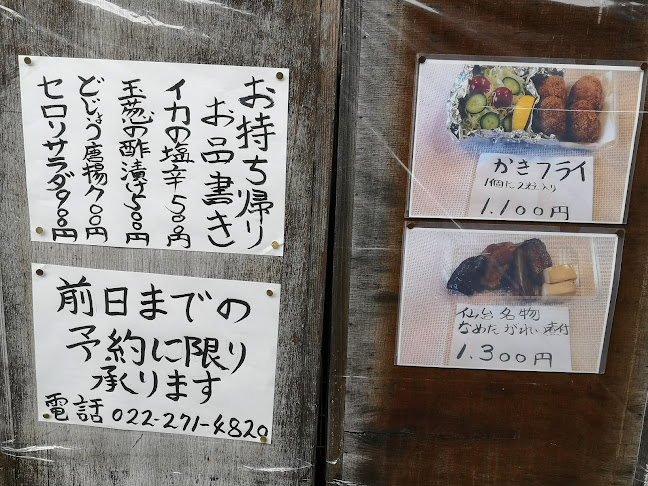 お持ち帰り
お品書き
イカの塩辛 500円
玉葱の酢漬け500円
どじょう唐揚700円
セロリサラダ900円
前日までの
予約に限り
承ります
電話 022-271-4820
かきフライ
1個に2粒入り
1.100円
仙台名物
なめたがれい煮付
1.300円